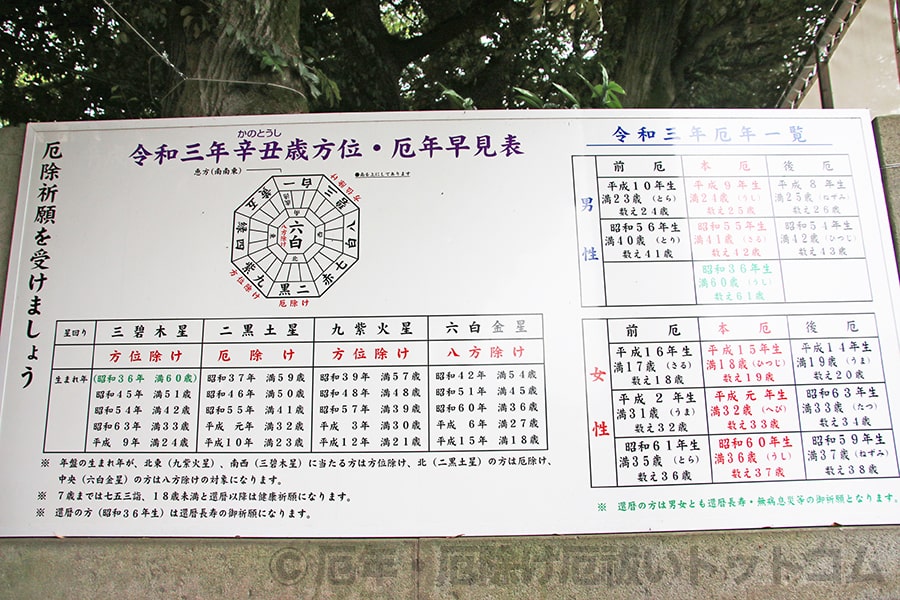 厄除祈願を受けましょう
かのとうし
令和三年辛丑歳方位・厄年早見表
恵方(南南東)
●南を上にしてあります
一白
三碧
八白
七赤
二黒
九紫
四緑
五黄
六白
八方除け
方位除け
方位除け
厄除け
南
北
星回り 三碧木星 二黒土星 九紫火星 六白金星
方位除け 厄除け 方位除け 八方除け
生まれ年 (昭和36年 満60歳) 昭和37年 満59歳 昭和39年 満57歳 昭和42年 満54歳
昭和45年 満51歳 昭和46年 満50歳 昭和48年 満48歳 昭和51年 満45歳
昭和54年 満42歳 昭和55年 満41歳 昭和57年 満39歳 昭和60年 満36歳
昭和63年 満33歳 平成 元年 満32歳 平成 3年 満30歳 平成 6年 満27歳
平成 9年 満24歳 平成10年 満23歳 平成12年 満21歳 平成15年 満18歳
※ 年盤の生まれ年が、北東(九紫火星)、南西(三碧木星)に当たる方は方位除け、北(二黒土星)の方は厄除け、
中央(六白金星)の方は八方除けの対象になります。
※ 7歳までは七五三詣、18歳未満と還暦以降は健康祈願になります。
※ 還暦の方(昭和36年生)は還暦長寿の御祈願になります。
令和三年厄年一覧
男性
前厄 本厄 後厄
平成10年生 平成9年生 平成8年生
満23歳(とら) 満24歳(うし) 満25歳(ねずみ)
数え24歳 数え25歳 数え26歳
昭和56年生 昭和55年生 昭和54年生
満40歳(とり) 満41歳(さる) 満42歳(ひつじ)
数え41歳 数え42歳 数え43歳
昭和36年生
満60歳(うし)
数え61歳
女性
前厄 本厄 後厄
平成16年生 平成15年生 平成14年生
満17歳(さる) 満18歳(ひつじ) 満19歳(うま)
数え18歳 数え19歳 数え20歳
平成2年生 平成元年生 昭和63年生
満31歳(うま) 満32歳(へび) 満33歳(たつ)
数え32歳 数え33歳 数え34歳
昭和61年生 昭和60年生 昭和59年生
満35歳(とら) 満36歳(うし) 満37歳(ねずみ)
数え36歳 数え37歳 数え38歳
※ 還暦の方は男女とも還暦長寿・無病息災等の御祈願となります。
©厄年・厄除け厄祓いドットコム